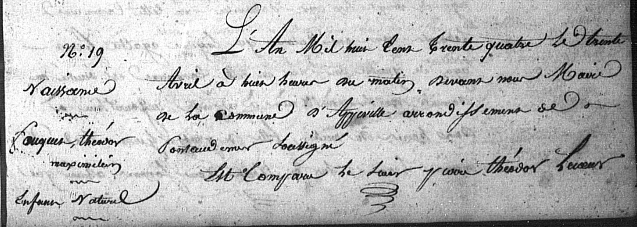 N.o 19
Naissance
Fouquet théodor
maximilien
Enfant Naturel
L'An Mil huit Cent Trente quatre le trente
Avril à huit heures du matin. Devant nous Maire
de la Commune d'Appeville arrondissement de
Pontaudemer Soussigné
Est Comparu le Sieur pierre théodor Lecoeur